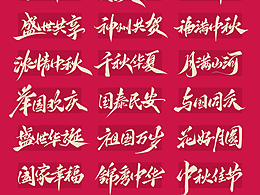 盛世共享 神州共贺 福满中秋
浓情中秋 千秋华夏 月满山河
举国欢庆 国泰民安 与国同庆
盛世华诞 祖国万岁 花好月圆
国家幸福 锦秀中华 中秋佳节